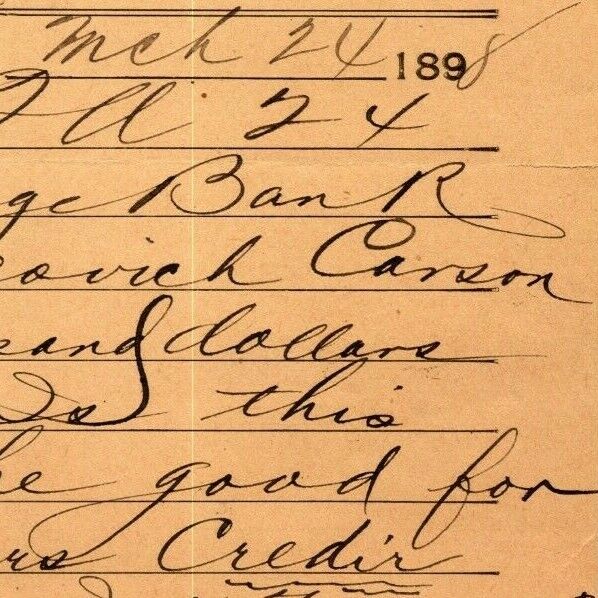 Mch 24 1898
Ill 24
ge Bank
covich Carson
sand dollars
Is this
he good for
rs Credit